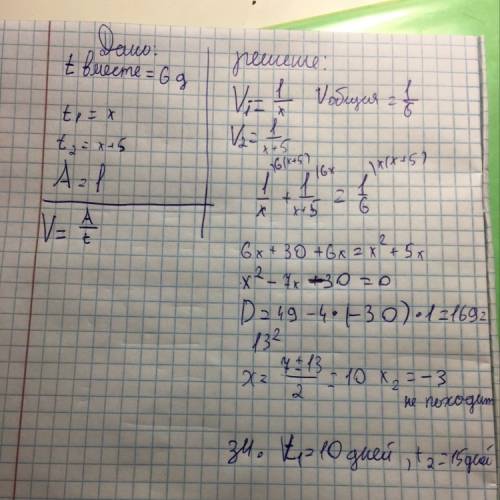 Дано:
t вместе = 6 д
t₁ = x
t₂ = x+5
A = 1
V = A/t
решение:
V₁ = 1/x   Vобщая = 1/6
V₂ = 1/(x+5)
1/x ^(6(x+5)) + 1/(x+5) ^(6x) = 1/6 ^(x(x+5))
6x + 30 + 6x = x² + 5x
x² - 7x - 30 = 0
D = 49 - 4·(-30)·1 = 169 =
13²
x = (7±13)/2 = 10   x₂ = -3
не походит
t₁ = 10 дней, t₂ = 15 дней